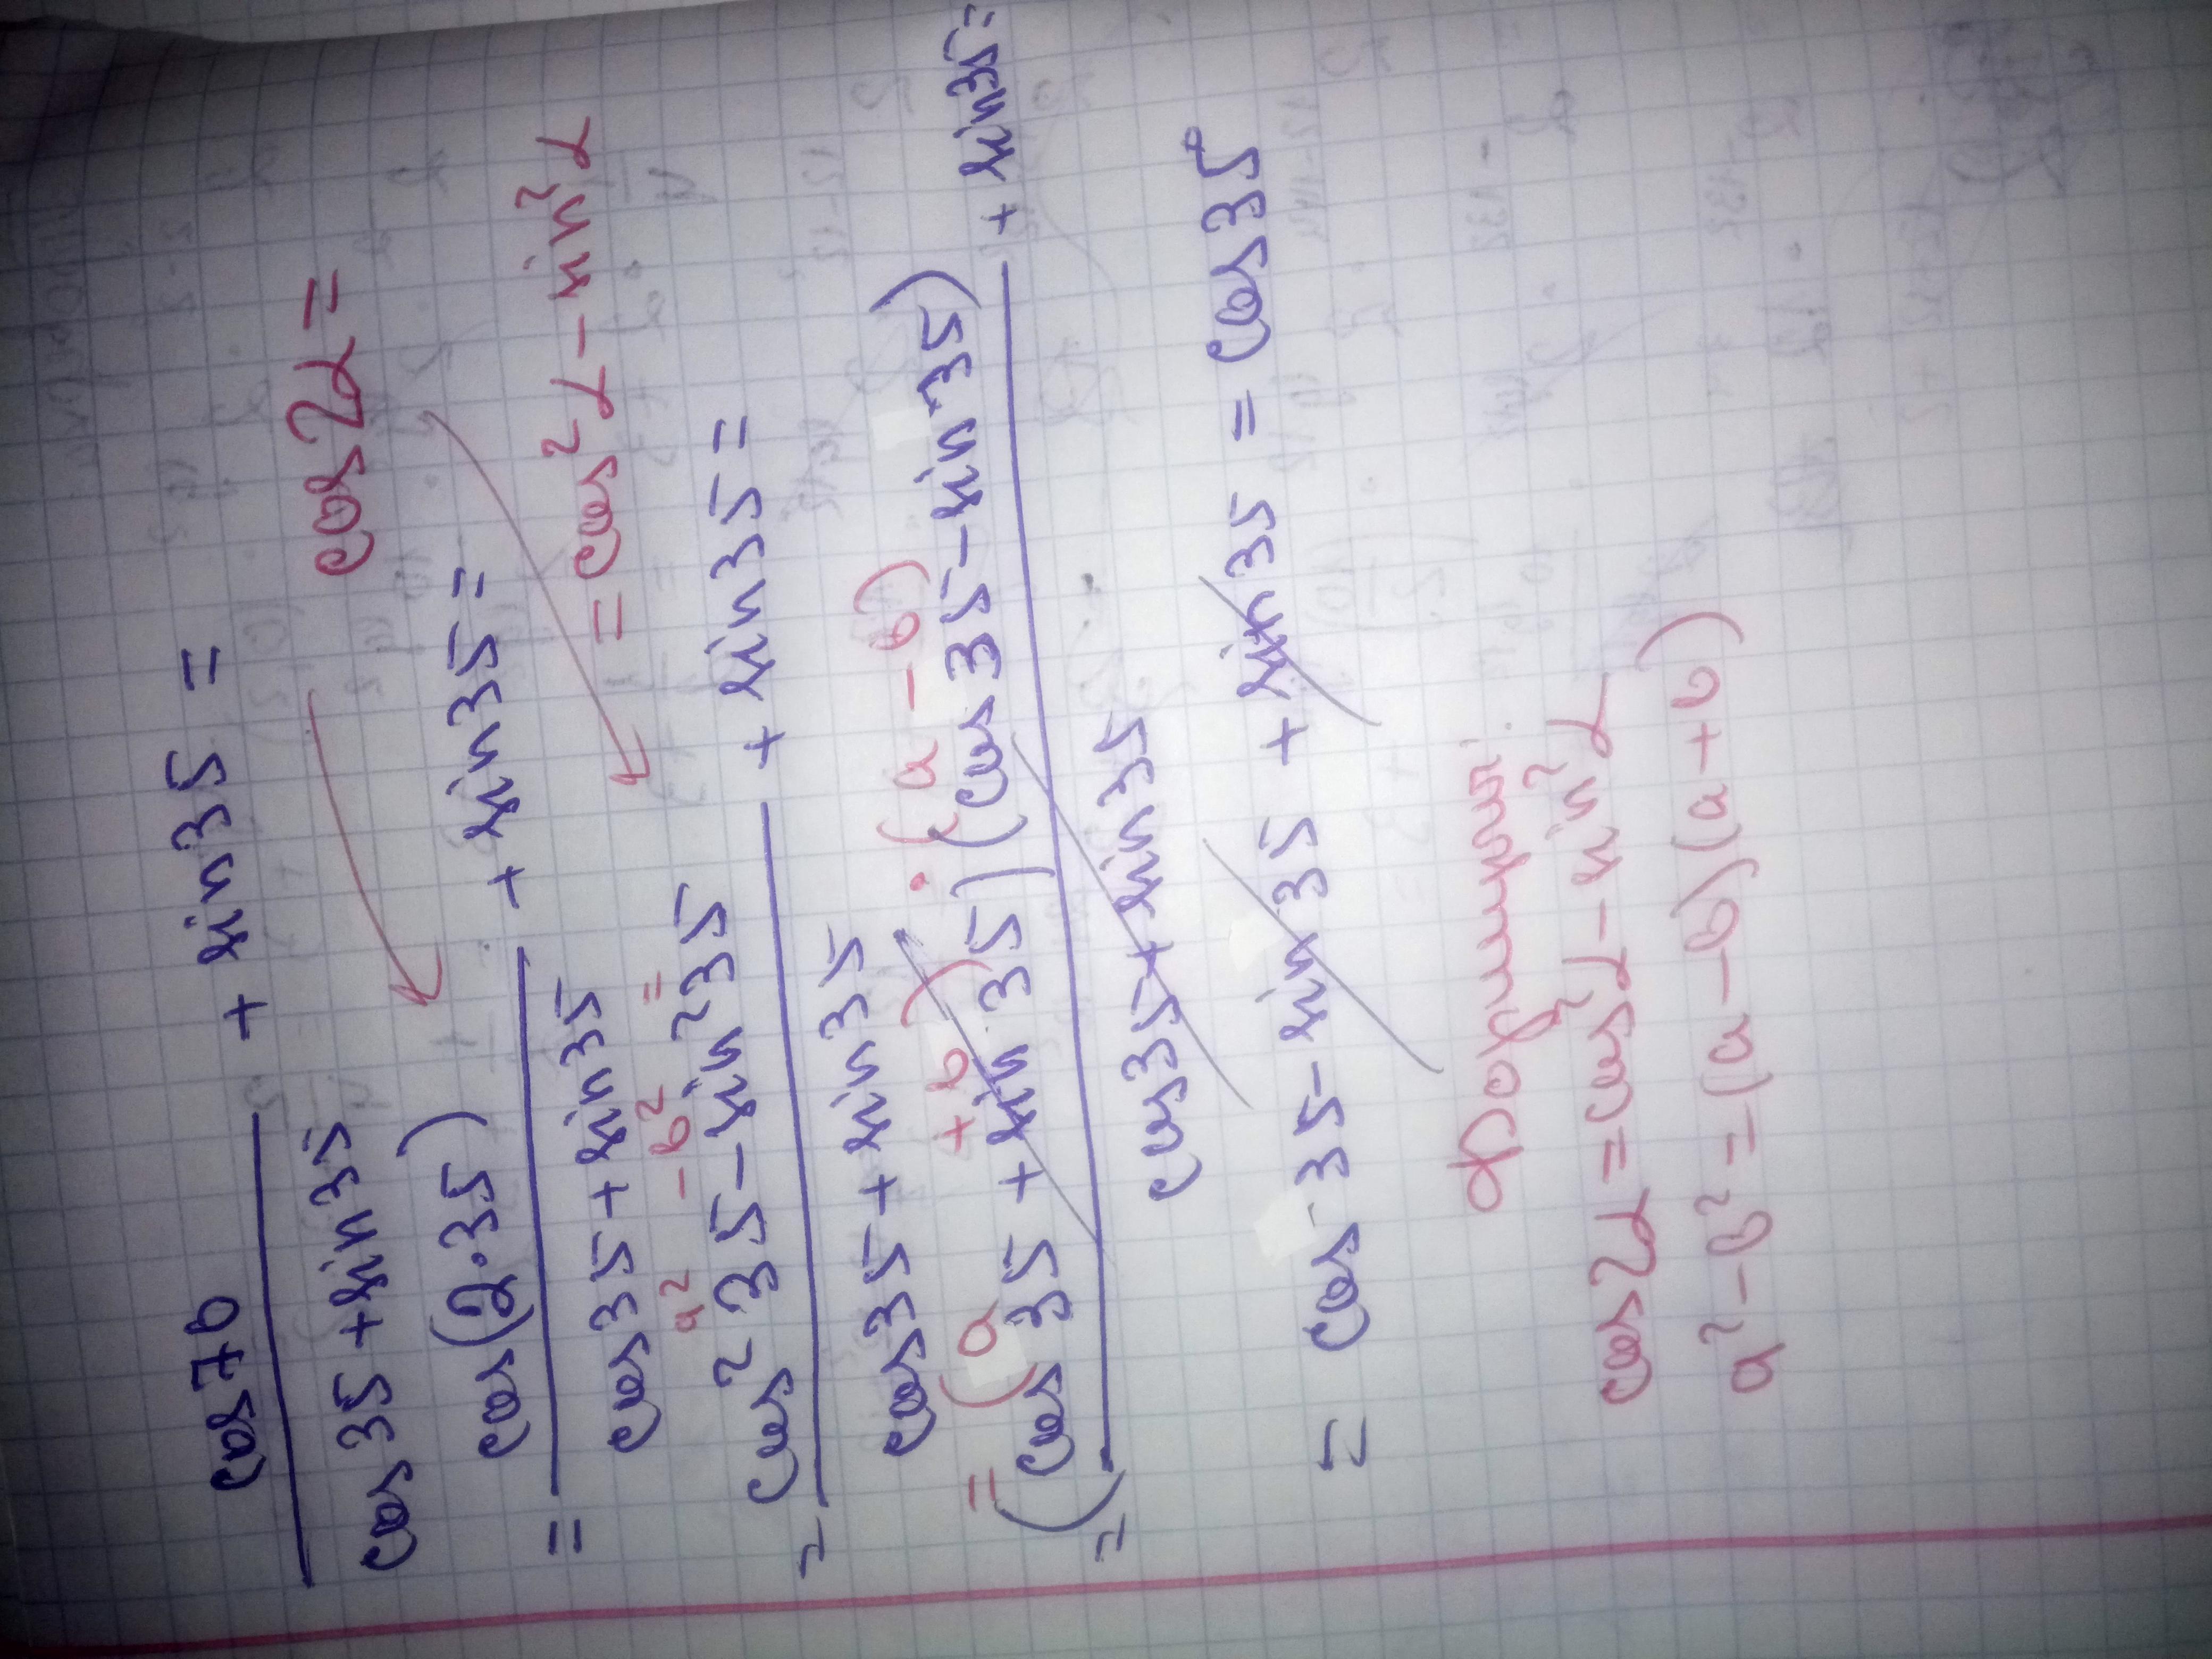 cos 70
cos 35 + sin 35 + sin 35 =
cos 2α =
= cos (2·35)
cos 35 + sin 35 + sin 35 =
= cos²α - sin²α
a² - b² =
= cos² 35 - sin² 35
cos 35 + sin 35 + sin 35 =
= (a + b) · (a - b)
= (cos 35 + sin 35) (cos 35 - sin 35)
cos 35 + sin 35 + sin 35 =
= cos 35 - sin 35 + sin 35 = cos 35°
Формулы:
cos 2α = cos²α - sin²α
a² - b² = (a - b)(a + b)